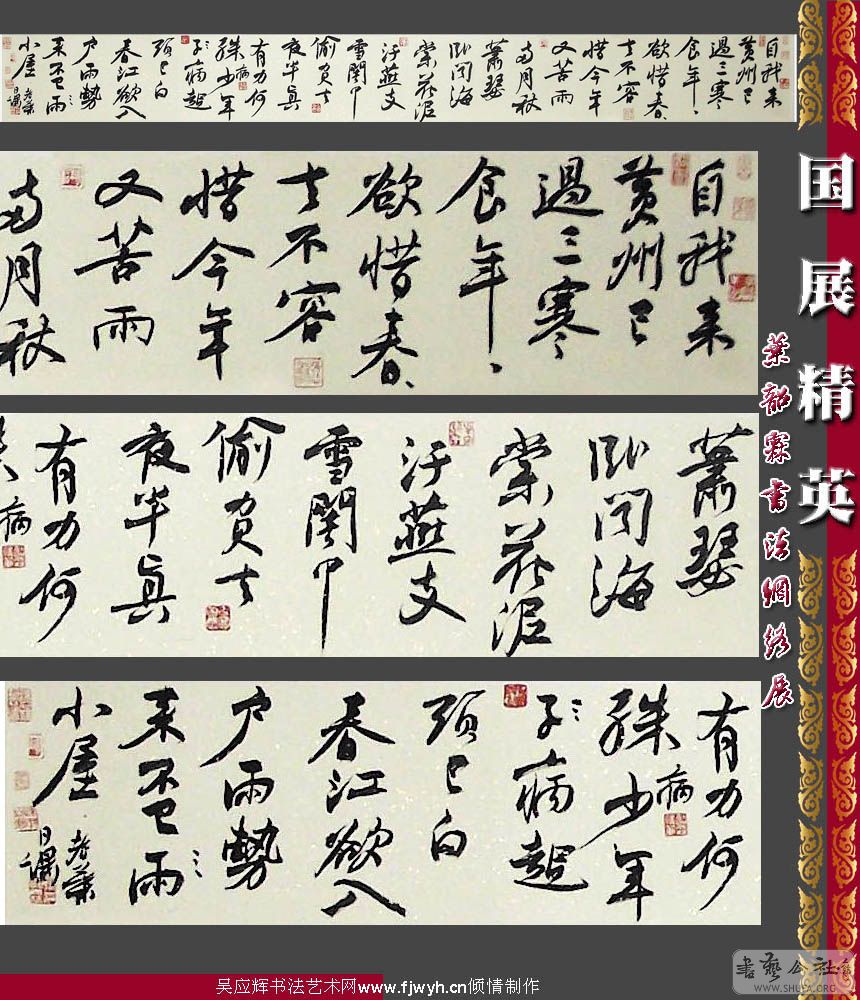 自我来
黄州已
過三寒
食年、
欲惜春、
去不容
惜今年
又苦雨
两月秋
蕭瑟
卧聞海
棠花泥
汙燕支
雪闇中
偷負去
夜半真
有力何
殊少年
病
子病起
頭已白
春江欲入
户雨勢
来不已雨
小屋
老葉
自我来
黄州已
過三寒
食年、
欲惜春、
去不容
惜今年
又苦雨
两月秋
蕭瑟
卧聞海
棠花泥
汙燕支
雪闇中
偷負去
夜半真
有力何
病
有力何
殊少年
病
子病起
頭已白
春江欲入
户雨勢
来不已雨
小屋
老葉
国展精英
葉韶霖書法網络展
吴应辉书法艺术网www.fjwyh.cn倾情制作
書藝公社
WWW.SHUFA.ORG